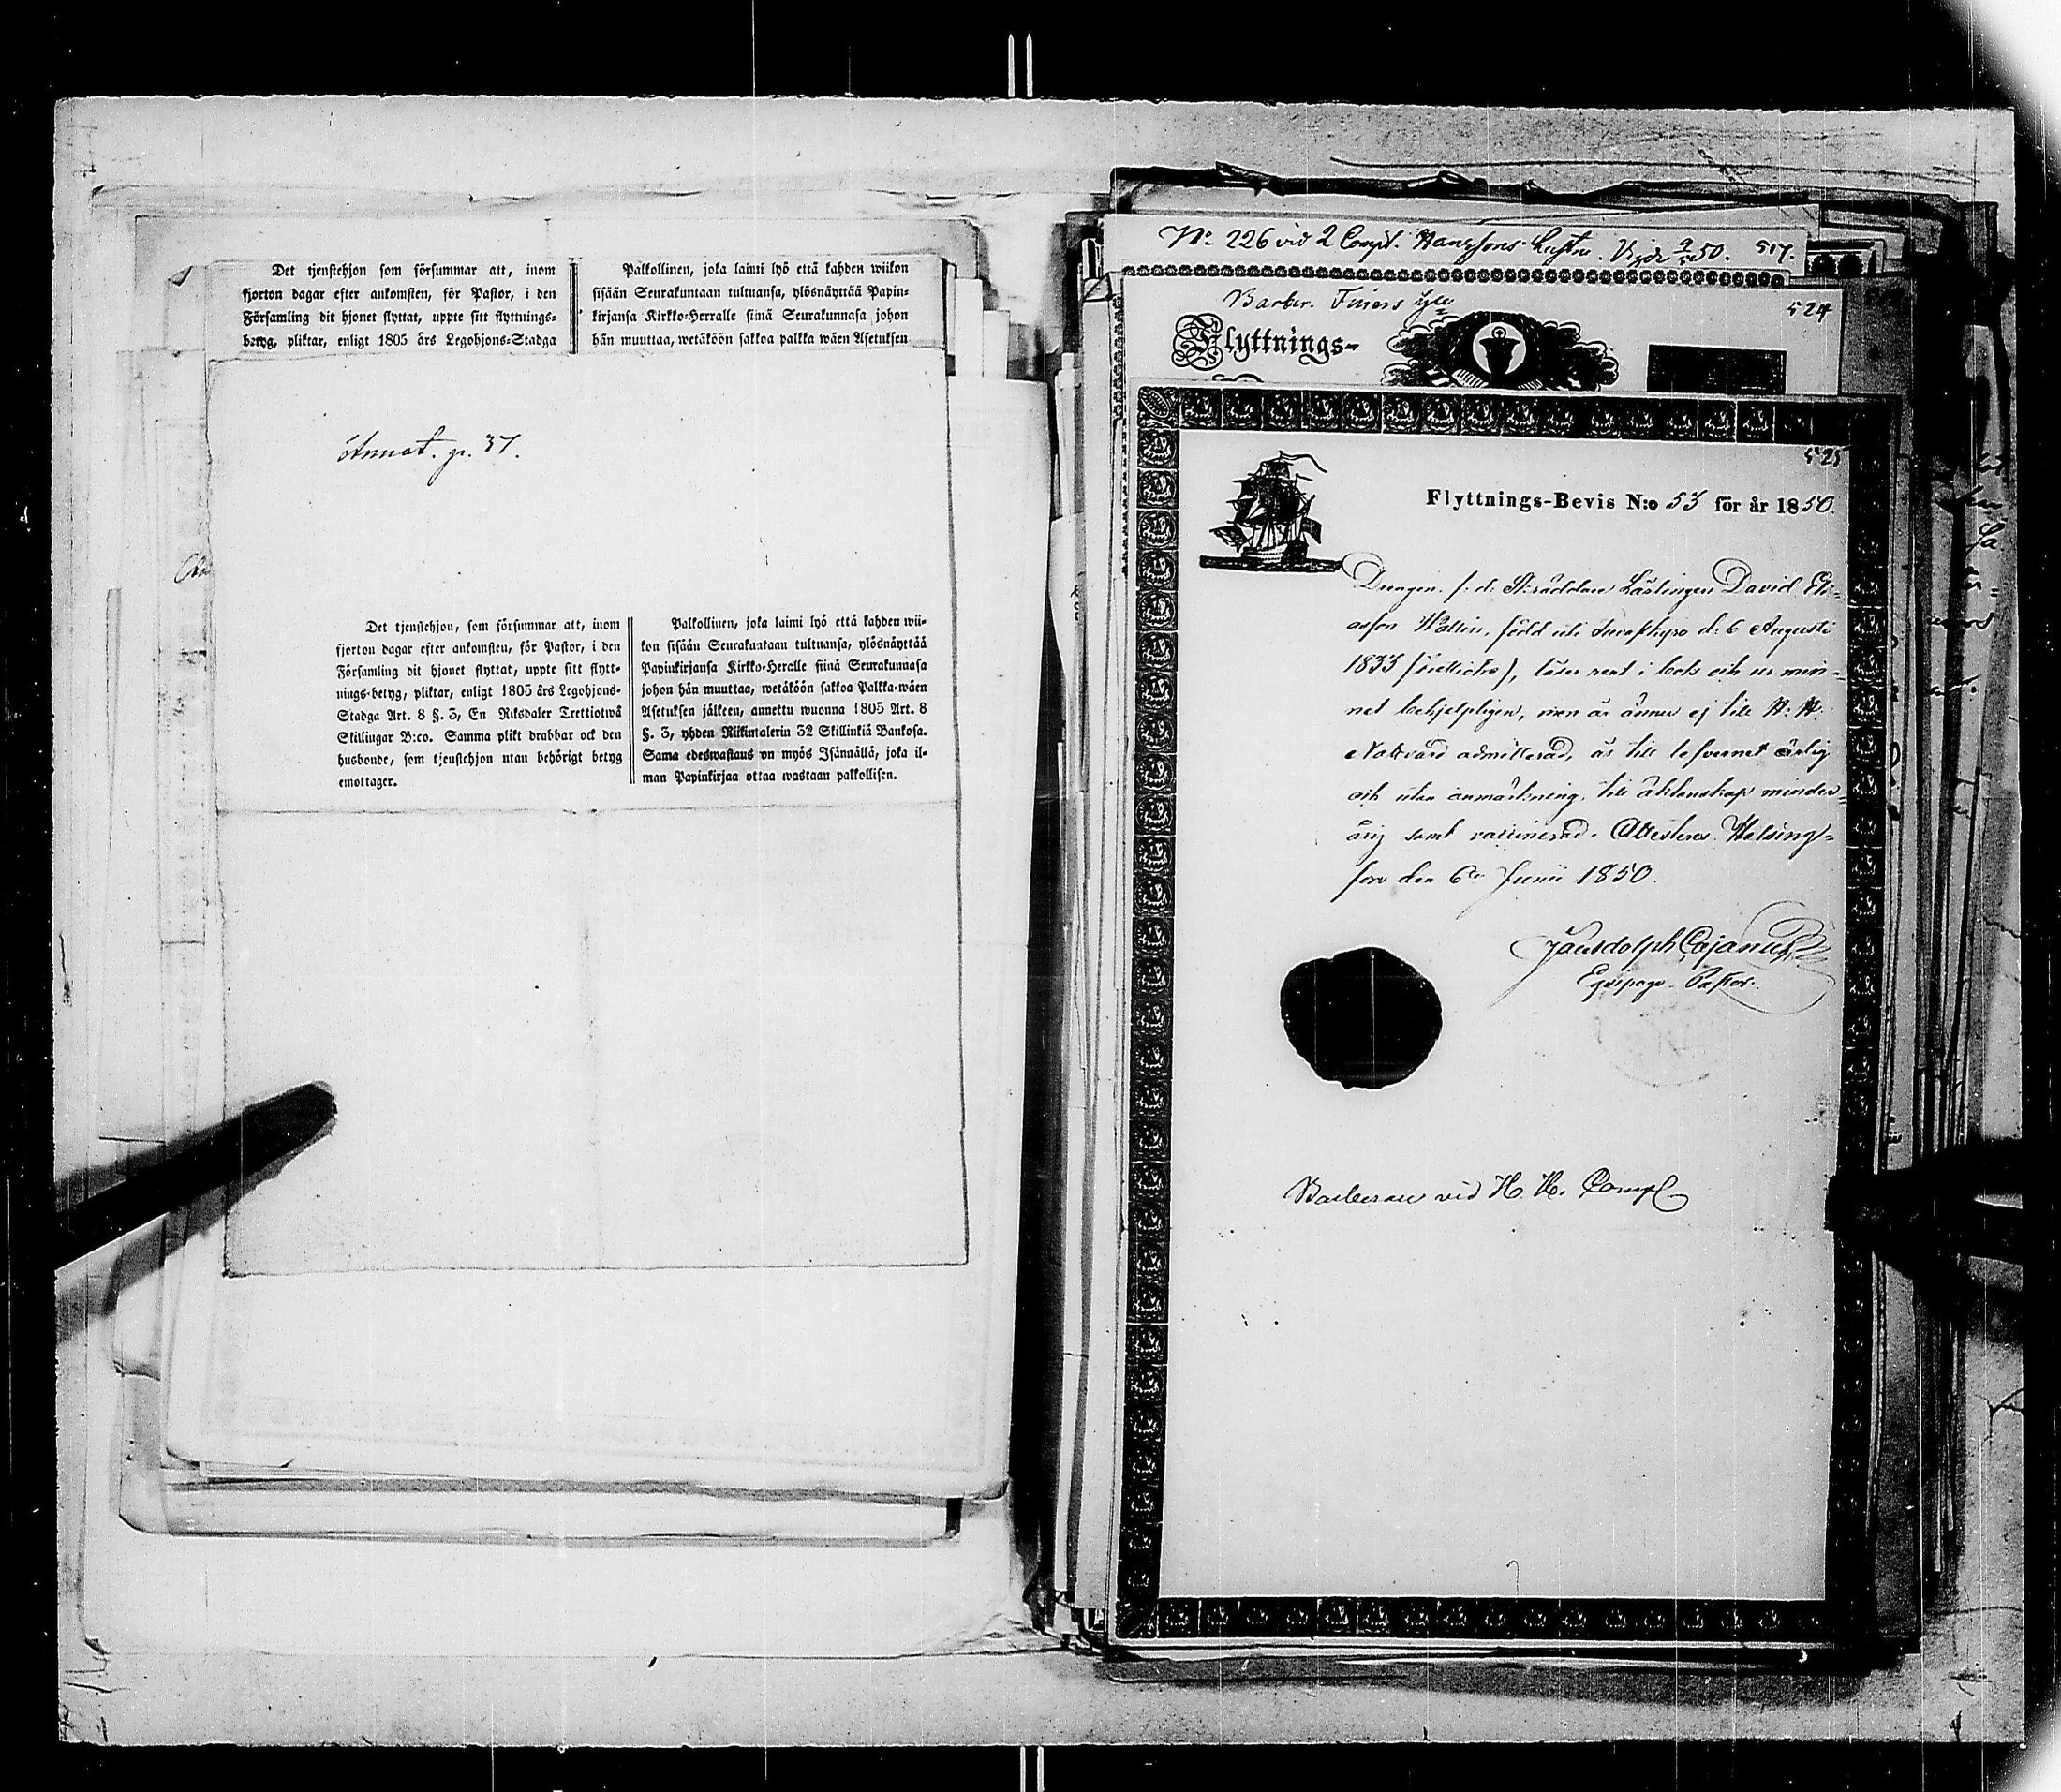 Det tjenstehjon som försummar att, inom
fjorton dagar efter ankomsten, för Pastor, i den
Församling dit hjonet flyttat, uppte sitt flyttnings-
betyg, pliktar, enligt 1805 års Legohjons-Stadga
Palkollinen, joka laimi lyö että kahden wiikon
sisään Seurakuntaan tultuansa, ylösnäyttää Papin-
kirjansa Kirkko-Herralle siinä Seurakunnasa johon
hän muuttaa, wetäköön sakkoa palkka wäen Asetuksen
Annot. p. 37.
Det tjenstehjon, som försummar att, inom
fjorton dagar efter ankomsten, för Pastor, i den
Församling dit hjonet flyttat, uppte sitt flytt-
nings-betyg, pliktar, enligt 1805 års Legohjons-
Stadga Art. 8 §. 3, En Riksdaler Trettiotwå
Skillingar B:co. Samma plikt drabbar ock den
husbonde, som tjenstehjon utan behörigt betyg
emottager.
Palkollinen, joka laimi lyö että kahden wii-
kon sisään Seurakuntaan tultuansa, ylösnäyttää
Papinkirjansa Kirkko-Heralle siinä Seurakunnasa
johon hän muuttaa, wetäköön sakkoa Palkka-wäen
Asetuksen jälkeen, annettu wuonna 1805 Art. 8
§. 3, yhden Riikintalerin 32 Skillinkiä Bankosa.
Sama edeswastaus on myös Isännällä, joka il-
man Papinkirjaa ottaa wastaan palkollisen.
No 226 vid 2 Compt. 50. 517.
Barber.
524
Flyttnings-
525
Flyttnings-Bevis N:o 53 för år 1850.
Drengen f. d. Skräddare Lärlingen David Eli-
asson Wallin, född uti d. 6 Augusti
1833 , läser rent i bok och ur min-
net behjelpligen, men är ännu ej till H. H.
Nattvard admitterad, är till lefvernet ärlig
och utan anmärkning, till äktenskap minder-
årig samt vaccinerad. Attesteras. Helsing-
fors den 6te Junii 1850.
Cajanus
Equipage-Pastor.
Barberare vid H. H. Comp